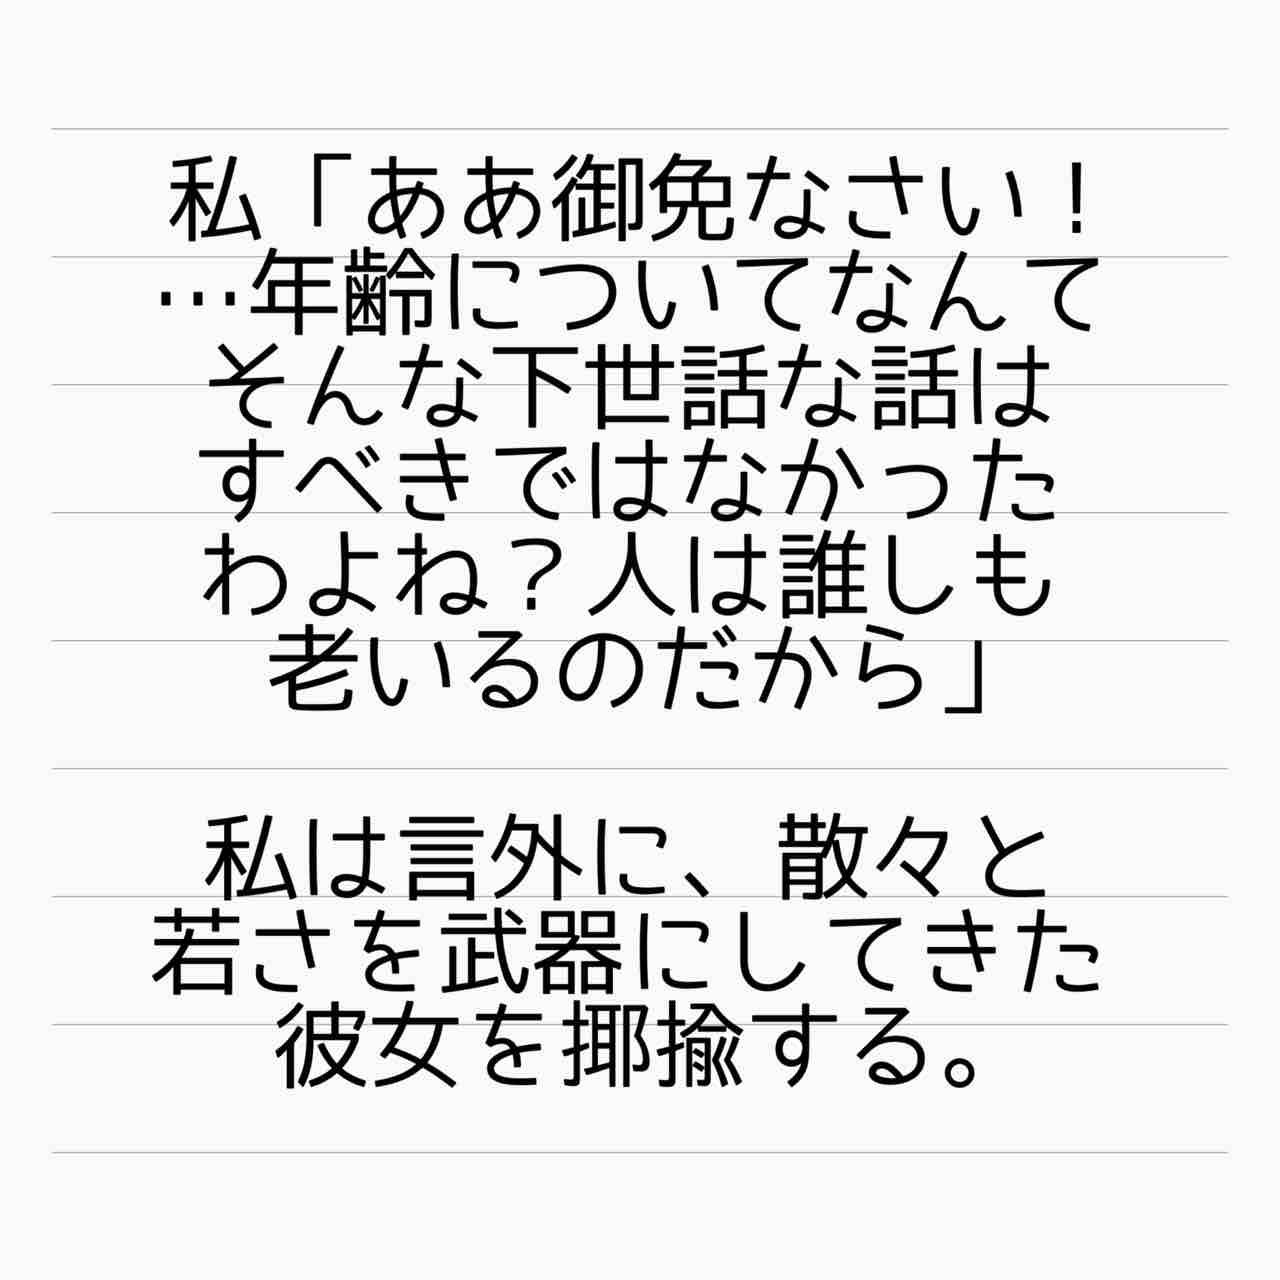 私「ああ御免なさい！
…年齢についてなんて
そんな下世話な話は
すべきではなかった
わよね？人は誰しも
老いるのだから」
私は言外に、散々と
若さを武器にしてきた
彼女を揶揄する。